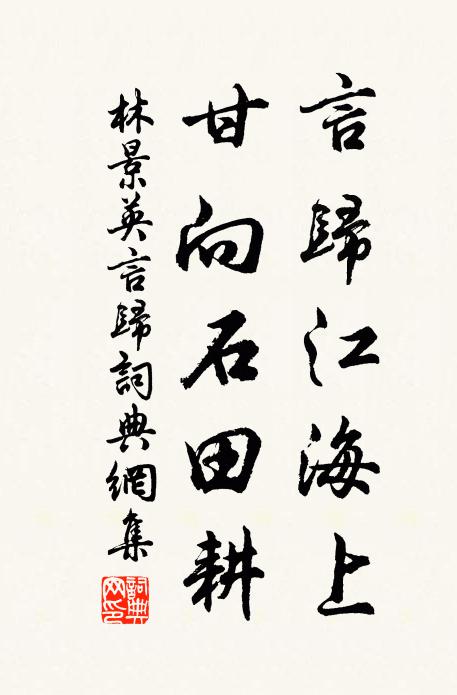 言歸江海上
甘向石田耕
林景英言歸詞典網集
詞典網印